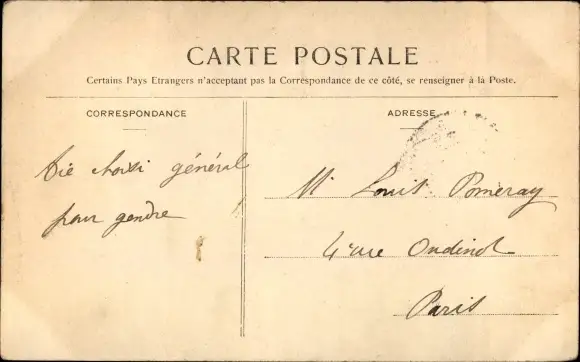 CARTE POSTALE
Certains Pays Etrangers n'acceptant pas la Correspondance de ce côté, se renseigner à la Poste.
CORRESPONDANCE
choisi général
pour gendre
ADRESSE
M Louis Pomeray
4 rue Oudinot
Paris